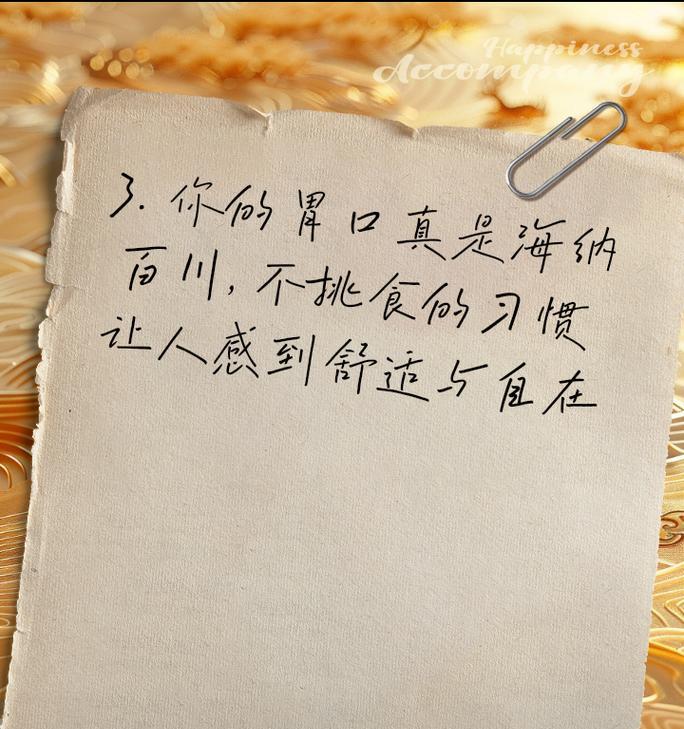 Happiness
Accompany
3. 你的胃口真是海纳
百川，不挑食的习惯
让人感到舒适与自在